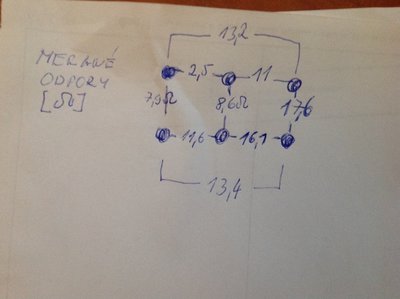 13,2
MERANÉ
ODPORY
[Ω]
2,5 11
7,9Ω 8,6Ω 17,6
11,6 16,1
13,4